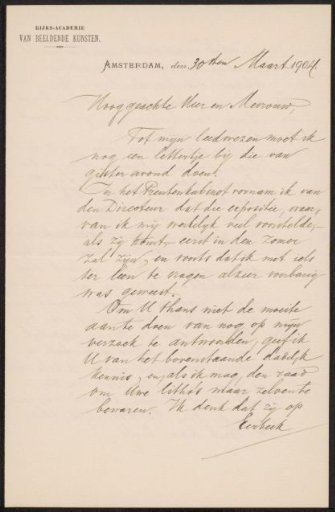 RIJKS-ACADEMIE
VAN BEELDENDE KUNSTEN.
AMSTERDAM, den 30sten Maart 1904
Hooggeachte Heer en Mevrouw,
Tot mijn leedwezen moet ik
nog een lettertje bij die van
gister avond doen.
In het Prentenkabinet vernam ik van
den Directeur dat die expositie, waar-
van ik mij werkelijk veel voorstelde,
als zij komt, eerst in den zomer
zal zijn, en voorts dat ik met iets
ter leen te vragen alzeer voorbarig
was geweest.
Om U thans niet de moeite
aan te doen van nog op mijn
verzoek te antwoorden, geef ik
U van het bovenstaande dadelijk
kennis, en, als ik mag, den raad
om Uwe litho's maar zelven te
bewaren. Ik denk dat zij op
Eerbeek